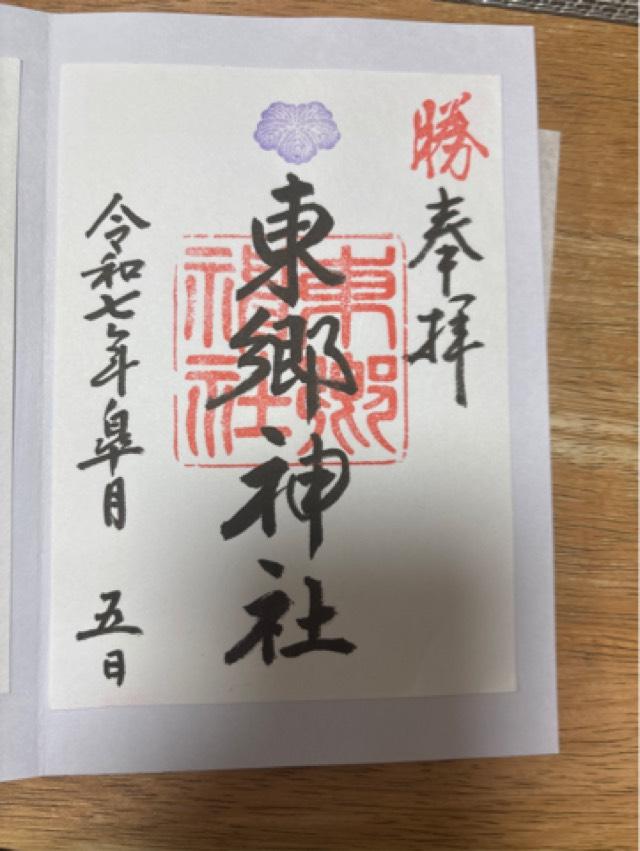 勝
奉拝
東郷神社
東郷
神社
令和七年皐月 五日